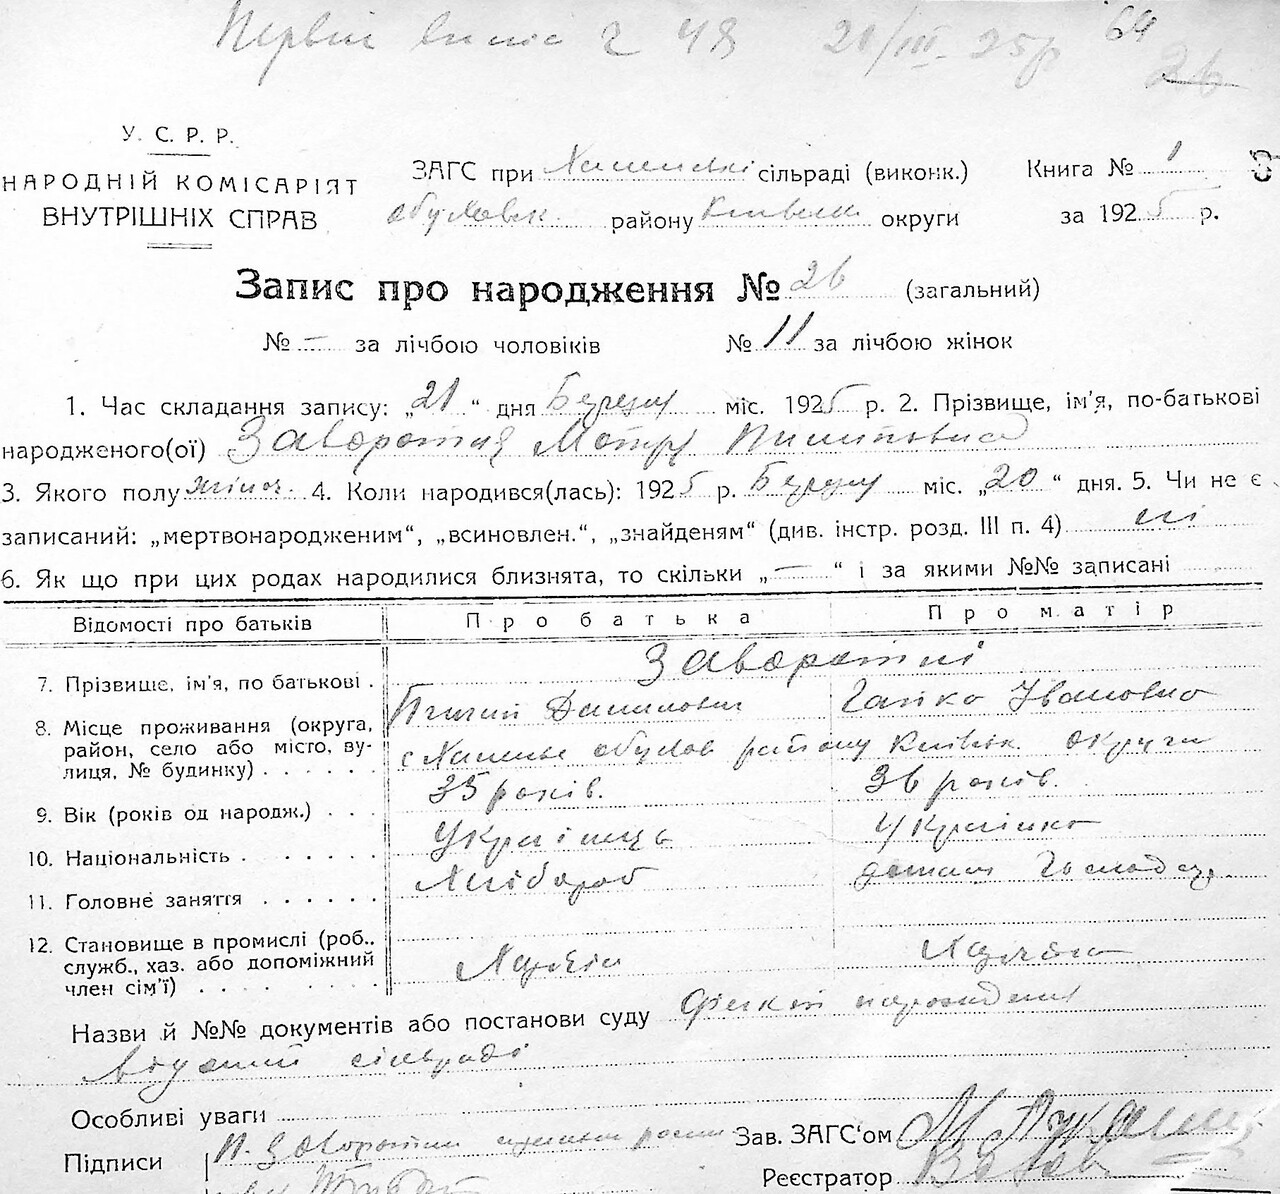 Первий випис Ч 48 21/III-25р 64
26
У. С. Р. Р.
НАРОДНІЙ КОМІСАРІЯТ
ВНУТРІШНІХ СПРАВ
ЗАГС при сільраді (виконк.) Книга № 1
району Київськ округи за 1925 р.
Запис про народження № 26 (загальний)
№ – за лічбою чоловіків № 11 за лічбою жінок
1. Час складання запису: „21“ дня Березня міс. 1925 р. 2. Прізвище, ім'я, по-батькові
народженого(ої) Заворотня Мотря Пилиповна
3. Якого полу жіноч. 4. Коли народився(лась): 1925 р. Березня міс. „20“ дня. 5. Чи не є
записаний: „мертвонародженим“, „всиновлен.“, „знайденям“ (див. інстр. розд. III п. 4) ні
6. Як що при цих родах народилися близнята, то скільки „—“ і за якими №№ записані
Відомості про батьків Про батька Про матір
Заворотні
7. Прізвище, ім'я, по батькові . Пилип Данилович Ганка Івановна
8. Місце проживання (округа,
район, село або місто, ву-
лиця, № будинку) . . . . . . с району Київськ. округи
35 років. 36 років.
9. Вік (років од народж.) . . .
Українець Українка
10. Національність . . . . . . .
Хлібороб домашн господар.
11. Головне заняття . . . . . .
12. Становище в промислі (роб.,
служб., хаз. або допоміжний
член сім'ї) . . . . . . . Хазяїн Хазяйка
Назви й №№ документів або постанови суду народження
сільраді
Особливі уваги
Підписи П. Заворотний Зав. ЗАГС'ом
Реєстратор